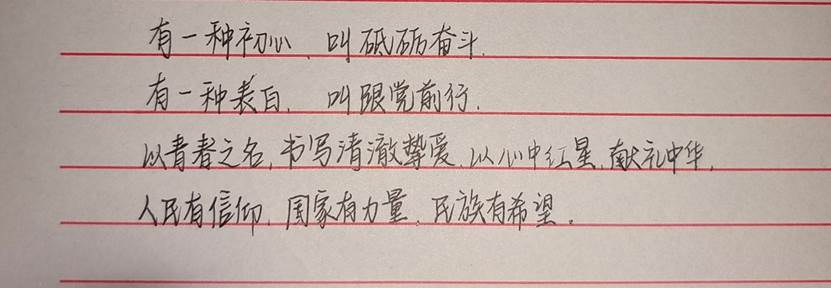 有一种初心、叫砥砺奋斗.
有一种表白、叫跟党前行.
以青春之名,书写清澈挚爱,以心中红星,献礼中华,
人民有信仰,国家有力量,民族有希望。